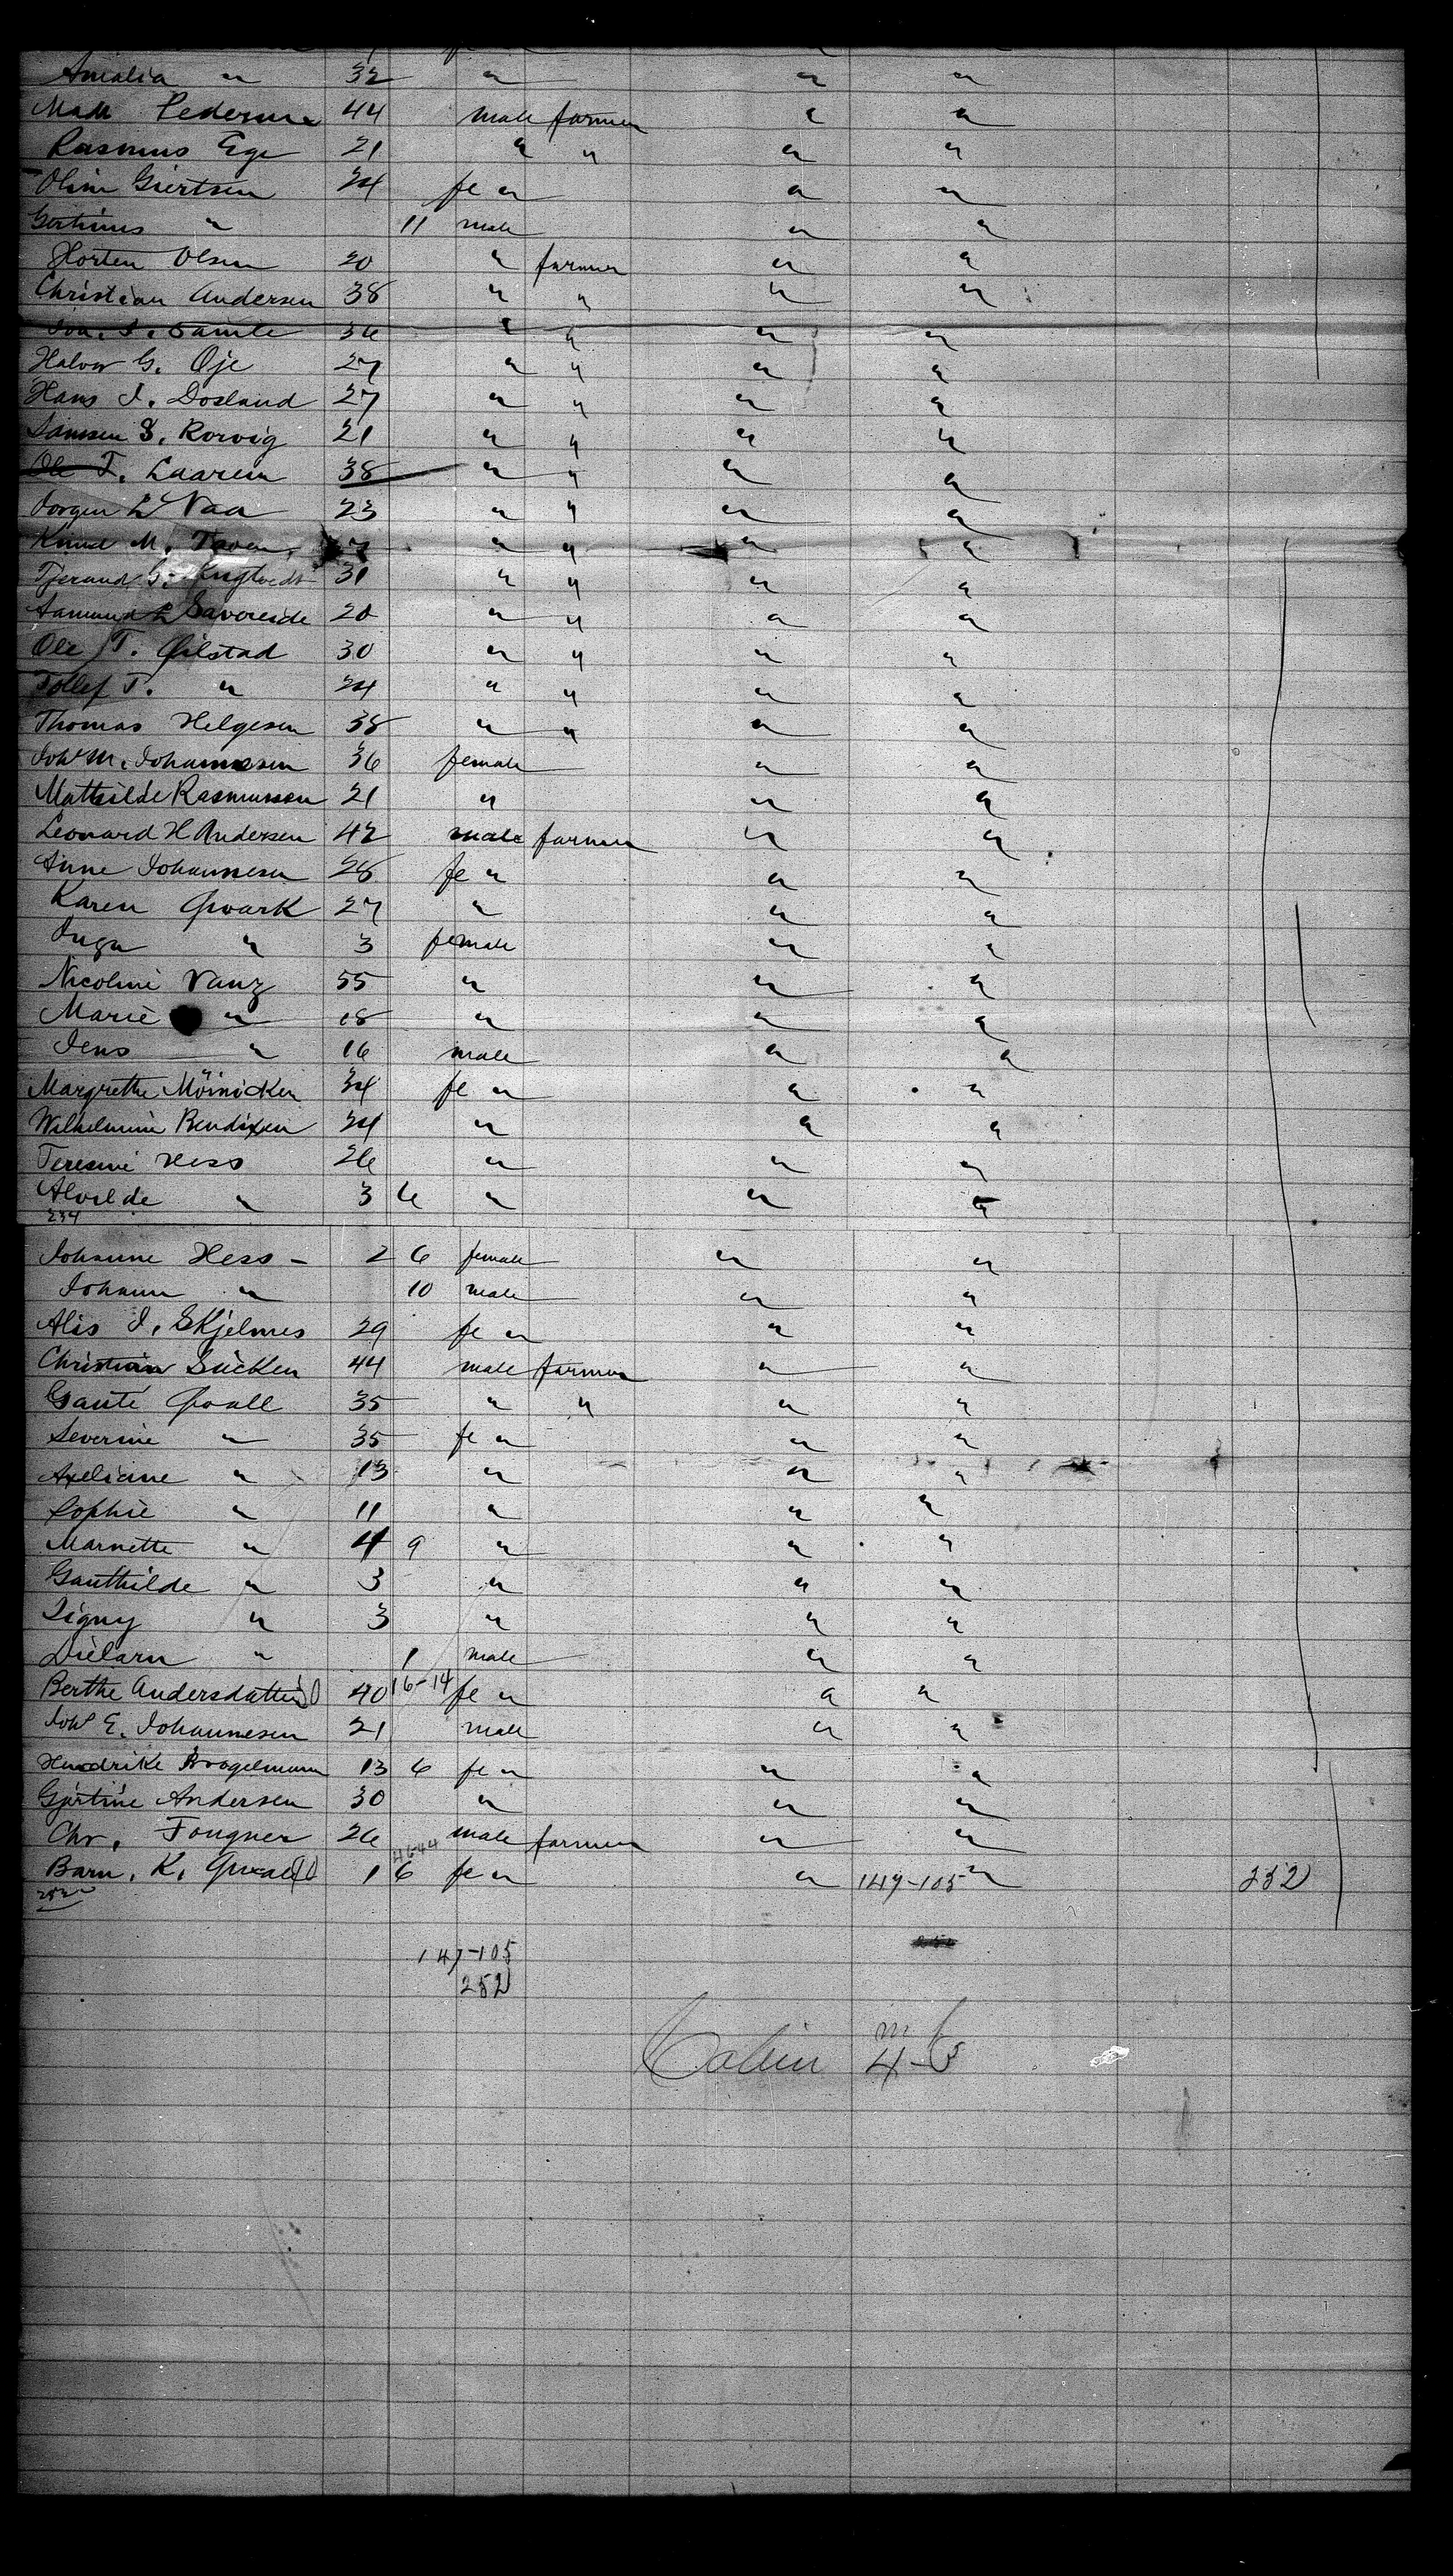 Amalia " 32 " " "
Mads Pedersen 44 male farmer " "
Rasmus Ege 21 " " " "
Oline Giertsen 24 fe " " "
" 11 male " "
Morten Olsen 20 " farmer " "
Christian Andersen 38 " " " "
36 " " " "
Halvor G. Oje 27 " " " "
Hans J. Dosland 27 " " " "
S. Rorvig 21 " " " "
Ole T. Laaren 38 " " " "
Jorgen L Vaa 23 " " " "
Knud M. " " " "
Tjerand G. 31 " " " "
Aamund L 20 " " " "
Ole T. Qilstad 30 " " " "
Tollef T. " 24 " " " "
Thomas Helgesen 38 " " " "
Joh M. Johannesen 36 female " "
Mathilde Rasmussen 21 " " "
Leonard H Andersen 42 male farmer " "
Anne Johannesen 28 fe " " "
Karen Qvark 27 " " "
Inga " 3 female " "
Nicoline Vanz 55 " " "
Marie " 18 " " "
Jens " 16 male " "
Margrethe Möinicken 34 fe " " "
Wilhelmine Bendixen 24 " " "
Teresine Hess 26 " " "
Alvilde " 3 6 " " "
234
Johanne Hess - 2 6 female " "
Johann " 10 male " "
Alis J. Skjelmes 29 fe " " "
Christian Sücken 44 male farmer " "
Gaute Qvall 35 " " " "
Severine " 35 fe " " "
Axeliane " 13 " " "
Sophie " 11 " " "
Marnette " 4 9 " " "
Gauthilde " 3 " " "
Signy " 3 " " "
" 1 male " "
Berthe Andersdatter 40 16-14 fe " " "
Joh E. Johannesen 21 male " "
Hendrike 13 6 fe " " "
Gjertine Andersen 30 " " "
Chr. Fougner 26 male farmer " "
Barn. K. 1 6 fe " " 147-105 " 252
252
147-105
252
Cabin m f
4-5